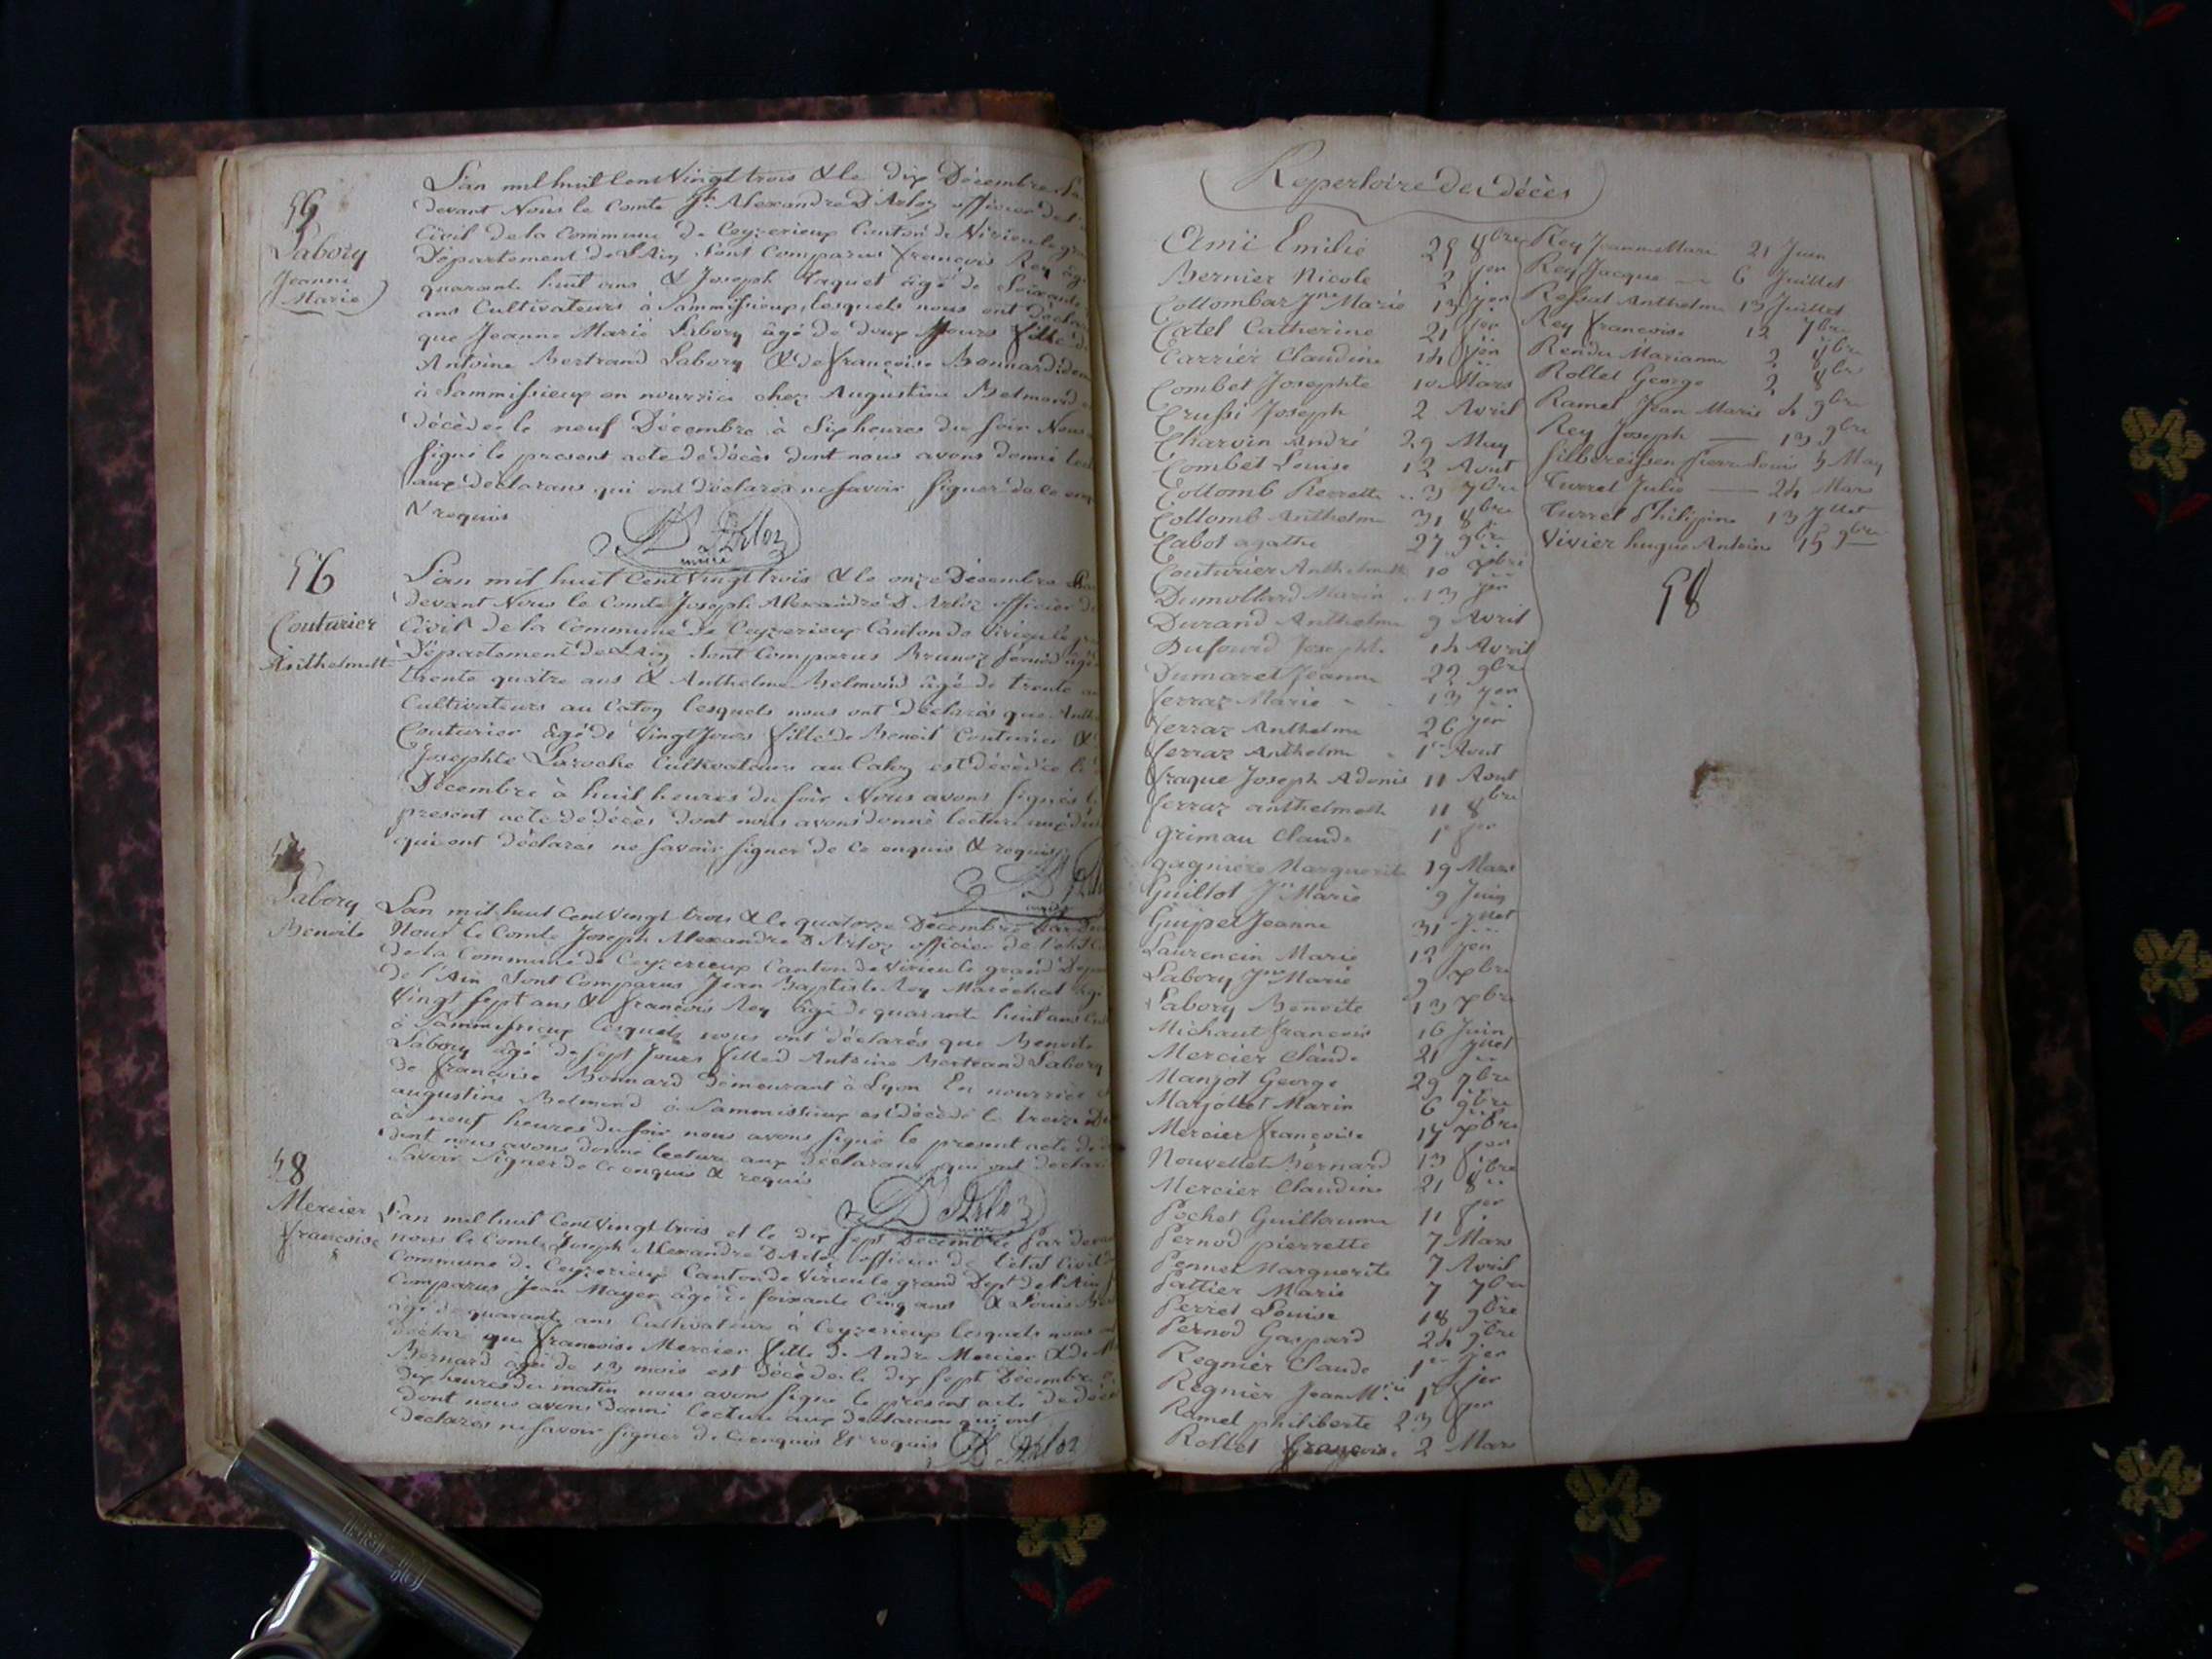 55
Labory
Jeanne
Marie
L'an mil huit Cent Vingt trois & le dix Décembre
devant Nous le Comte Jh Alexandre D'Arloz officier de
Civil de la Commune de Ceyzerieux Canton de Virieu le
Département de L'Ain Sont Comparus francois Rey âgé
quarante huit ans & Joseph Paquet âgé de Soixante
ans Cultivateurs à Sammissieux, lesquels nous ont
que Jeanne Marie Labory âgé de deux Jours fille
Antoine Bertrand Labory & de françoise Bonnard
à Sammissieux en nourrice chez Augustine Belmond
décédée le neuf Décembre à Six heures du soir Nous
signé le present acte de décès dont nous avons donné
aux déclarans qui ont déclarés ne savoir signer de ce
& requis
D'Arloz
maire
56
Couturier
Anthelmette
L'an mil huit Cent Vingt trois & le onze Décembre
devant Nous le Comte Joseph Alexandre D'Arloz officier
Civil de la Commune de Ceyzerieux Canton de Virieu le
Département de L'Ain Sont Comparus Brunoz
trente quatre ans & Anthelme Belmond âgé de trente
Cultivateurs au lesquels nous ont Déclarés que
Couturier âgé de Vingt Jours fille de Benoit Couturier &
Josephte Laroche Cultivateurs au est décédée le
Décembre à huit heures du soir Nous avons signés
present acte de décès dont nous avons donné lecture aux
qui ont déclarés ne savoir signer de ce enquis & requis
D'Arloz
Labory
Benoite
L'an mil huit Cent Vingt trois & le quatorze Décembre
Nous le Comte Joseph Alexandre D'Arloz officier de l'etat
de la Commune de Ceyzerieux Canton de Virieu le grand
de l'Ain Sont Comparus Jean Baptiste Rey Maréchal
Vingt sept ans & francois Rey âgé de quarante huit ans
à Sammissieux lesquels nous ont déclarés que Benoite
Labory âgé de sept Jours fille d'Antoine Bertrand Labory
de françoise Bonnard Demeurant à Lyon En nourrice
augustine Belmond à Sammissieux est décédé le treize
à neuf heures du soir nous avons signé le present acte de
dont nous avons donné lecture aux déclarans qui ont déclaré
savoir signer de ce enquis & requis
D'Arloz
58
Mercier
francoise
L'an mil huit Cent Vingt trois et le dix sept Décembre Par
nous le Comte Joseph Alexandre D'Arloz officier de l'etat Civil
Commune de Ceyzerieux Canton de Virieu le grand Dept de l'Ain
Comparus Jean Mayer âgé de soixante Cinq ans & Louis
âgé de quarante ans Cultivateurs à Ceyzerieux lesquels nous
déclaré que francoise Mercier fille de André Mercier & de
Bernard âgée de 13 mois est décédée le dix sept Décembre
Dix heures du matin nous avons signé le present acte de
dont nous avons donné lecture aux déclarans qui ont
déclarés ne savoir signer de ce enquis & requis D'Arloz
Repertoire des décès
Ami Emilie 28 8bre
Bernier Nicole 2 jer
Collombar Jne Marie 13 jer
Catel Catherine 21 jer
Carrier Claudine 14 jer
Combet Josephte 10 Mars
Crussi Joseph 2 Avril
Charvin André 29 May
Combet Louise 12 Aout
Collomb Pierrette 3 7bre
Collomb Anthelme 31 8bre
Cabot agathe 27 9bre
Couturier Anthelmette 10 xbre
Dumollard Marin 13 jer
Durand Anthelme 9 Avril
Dufourd Josephte 14 Avril
Dumaret Jeanne 22 9bre
ferraz Marie 13 jer
ferraz Anthelme 26 jer
ferraz Anthelme 1er Aout
fraque Joseph Adonis 11 Aout
ferraz anthelmette 11 8bre
Grimau Claude 1er jer
gagniere Marguerite 19 Mars
Guillot Jn Marie 9 Juin
Guipet Jeanne 31 Jllet
Laurencin Marie 12 jer
Labory Jne Marie 9 xbre
Labory Benoite 13 xbre
Michaut francois 16 Juin
Mercier Claude 21 Jllet
Manjot George 29 7bre
Marjollet Marin 6 9bre
Mercier françoise 17 xbre
Nouvellet Bernard 13 jer
Mercier Claudine 21 8bre
Pochet Guillaume 11 jer
Pernod pierrette 7 Mars
Pennet Marguerite 7 Avril
Pattier Marie 7 7bre
Perret Louise 18 9bre
Pernod Gaspard 24 9bre
Regnier Claude 1er jer
Regnier Jean Mie 1er jer
Ramel philiberte 23 jer
Rollet françoise 2 Mars
Rey Jeanne Marie 21 Juin
Rey Jacque 6 Juillet
Ressut Anthelme 13 Juillet
Rey francoise 12 7bre
Rendu Marianne 2 8bre
Rollet George 2 8bre
Ramel Jean Marie 4 9bre
Rey Joseph 13 9bre
Silbereissen Pierre Louis 5 May
Turrel Julie 24 Mars
Turrel Philippine 13 Jllet
Vivier hugue Antoine 15 9bre
58